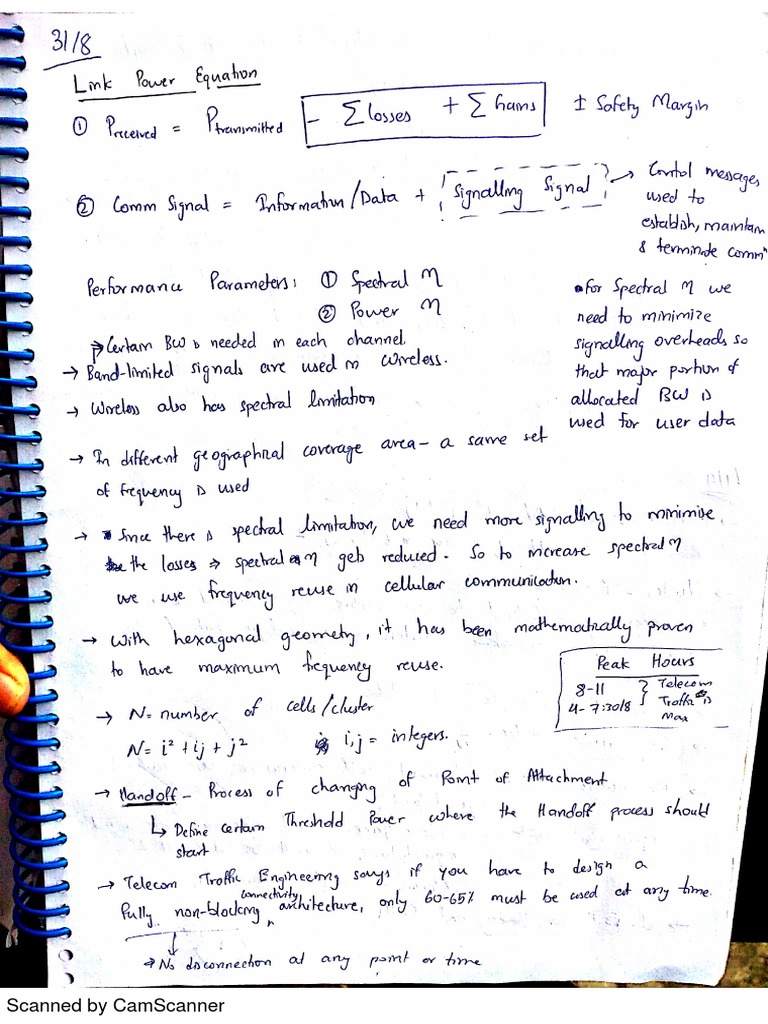 31/8
Link Power Equation
① Preceived = Ptransmitted - Σ losses + Σ Gains ± Safety Margin
② Comm Signal = Information/Data + Signalling Signal → Control messages
used to
establish, maintain
& terminate commⁿ
Performance Parameters: ① Spectral η
② Power η
→ Certain BW is needed in each channel.
→ Band-limited signals are used in wireless.
→ Wireless also has spectral limitation
• For Spectral η we
need to minimize
signalling overheads so
that major portion of
allocated BW is
used for user data
→ In different geographical coverage area - a same set
of frequency is used
→ Since there is spectral limitation, we need more signalling to minimise
the losses → spectral η gets reduced. So to increase spectral η
we use frequency reuse in cellular communication.
→ With hexagonal geometry, it has been mathematically proven
to have maximum frequency reuse.
Peak Hours
8-11 } Telecom
4-7:30/8 Traffic is
Max
→ N = number of cells/cluster
N = i² + ij + j² i, j = integers.
→ Handoff - Process of changing of Point of Attachment
↳ Define certain Threshold Power where the Handoff process should
start
→ Telecom Traffic Engineering says if you have to design a
fully non-blocking connectivity architecture, only 60-65% must be used at any time.
→ No disconnection at any point or time
Scanned by CamScanner